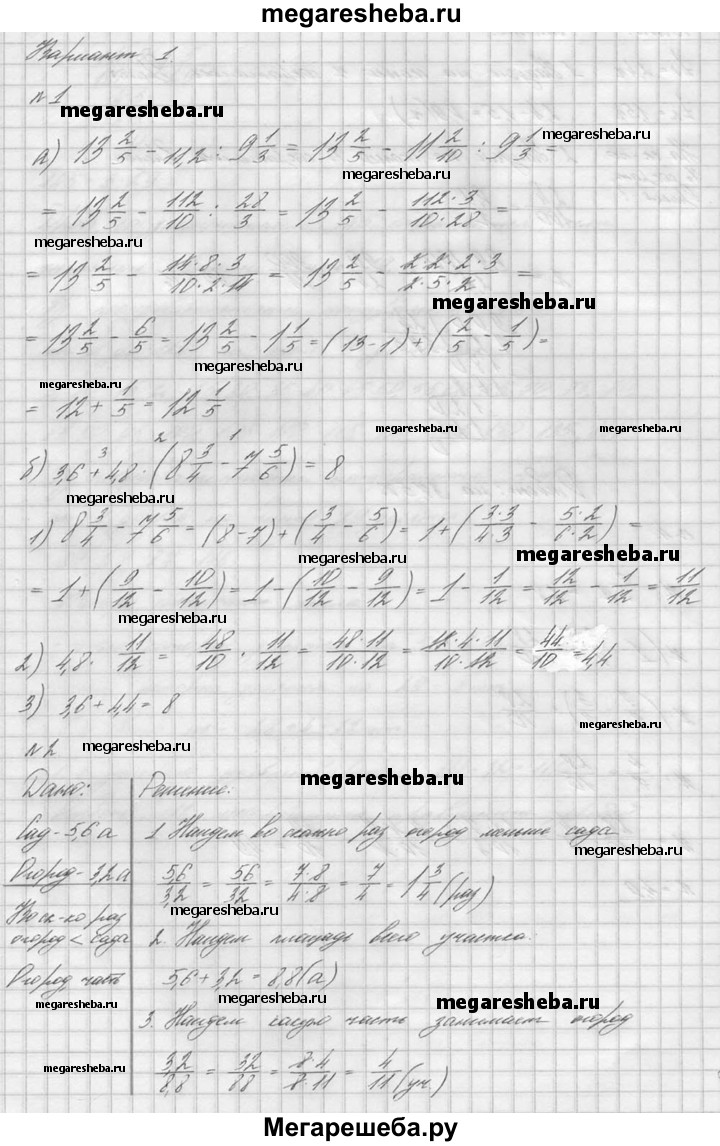 megaresheba.ru
Вариант 1
№1
megaresheba.ru
а) 13 2/5 - 11,2 : 9 1/3 = 13 2/5 - 11 2/10 : 9 1/3 =
megaresheba.ru
megaresheba.ru
= 13 2/5 - 112/10 : 28/3 = 13 2/5 - 112·3/10·28 =
megaresheba.ru
= 13 2/5 - 14·8·3/10·2·14 = 13 2/5 - 2·2·2·3/2·5·2 =
megaresheba.ru
= 13 2/5 - 6/5 = 13 2/5 - 1 1/5 = (13-1) + (2/5 - 1/5) =
megaresheba.ru
megaresheba.ru
= 12 + 1/5 = 12 1/5
megaresheba.ru
megaresheba.ru
б) 3,6 + 4,8 · (8 3/4 - 7 5/6) = 8
megaresheba.ru
1) 8 3/4 - 7 5/6 = (8-7) + (3/4 - 5/6) = 1 + (3·3/4·3 - 5·2/6·2) =
megaresheba.ru
megaresheba.ru
= 1 + (9/12 - 10/12) = 1 - (10/12 - 9/12) = 1 - 1/12 = 12/12 - 1/12 = 11/12
megaresheba.ru
2) 4,8 · 11/12 = 48/10 · 11/12 = 48·11/10·12 = 12·4·11/10·12 = 44/10 = 4,4
3) 3,6 + 4,4 = 8
№2
megaresheba.ru
Дано:
Сад - 5,6 а
Огород - 3,2 а
Во ск-ко раз
огород < сада
Огород часть
Решение:
megaresheba.ru
1. Найдем во сколько раз огород меньше сада
megaresheba.ru
5,6/3,2 = 56/32 = 7·8/4·8 = 7/4 = 1 3/4 (раз)
megaresheba.ru
2. Найдем площадь всего участка:
5,6 + 3,2 = 8,8 (а)
megaresheba.ru
megaresheba.ru
3. Найдем какую часть занимает огород
megaresheba.ru
3,2/8,8 = 32/88 = 8·4/8·11 = 4/11 (уч.)
megaresheba.ru
megaresheba.ru
Мегарешеба.ру